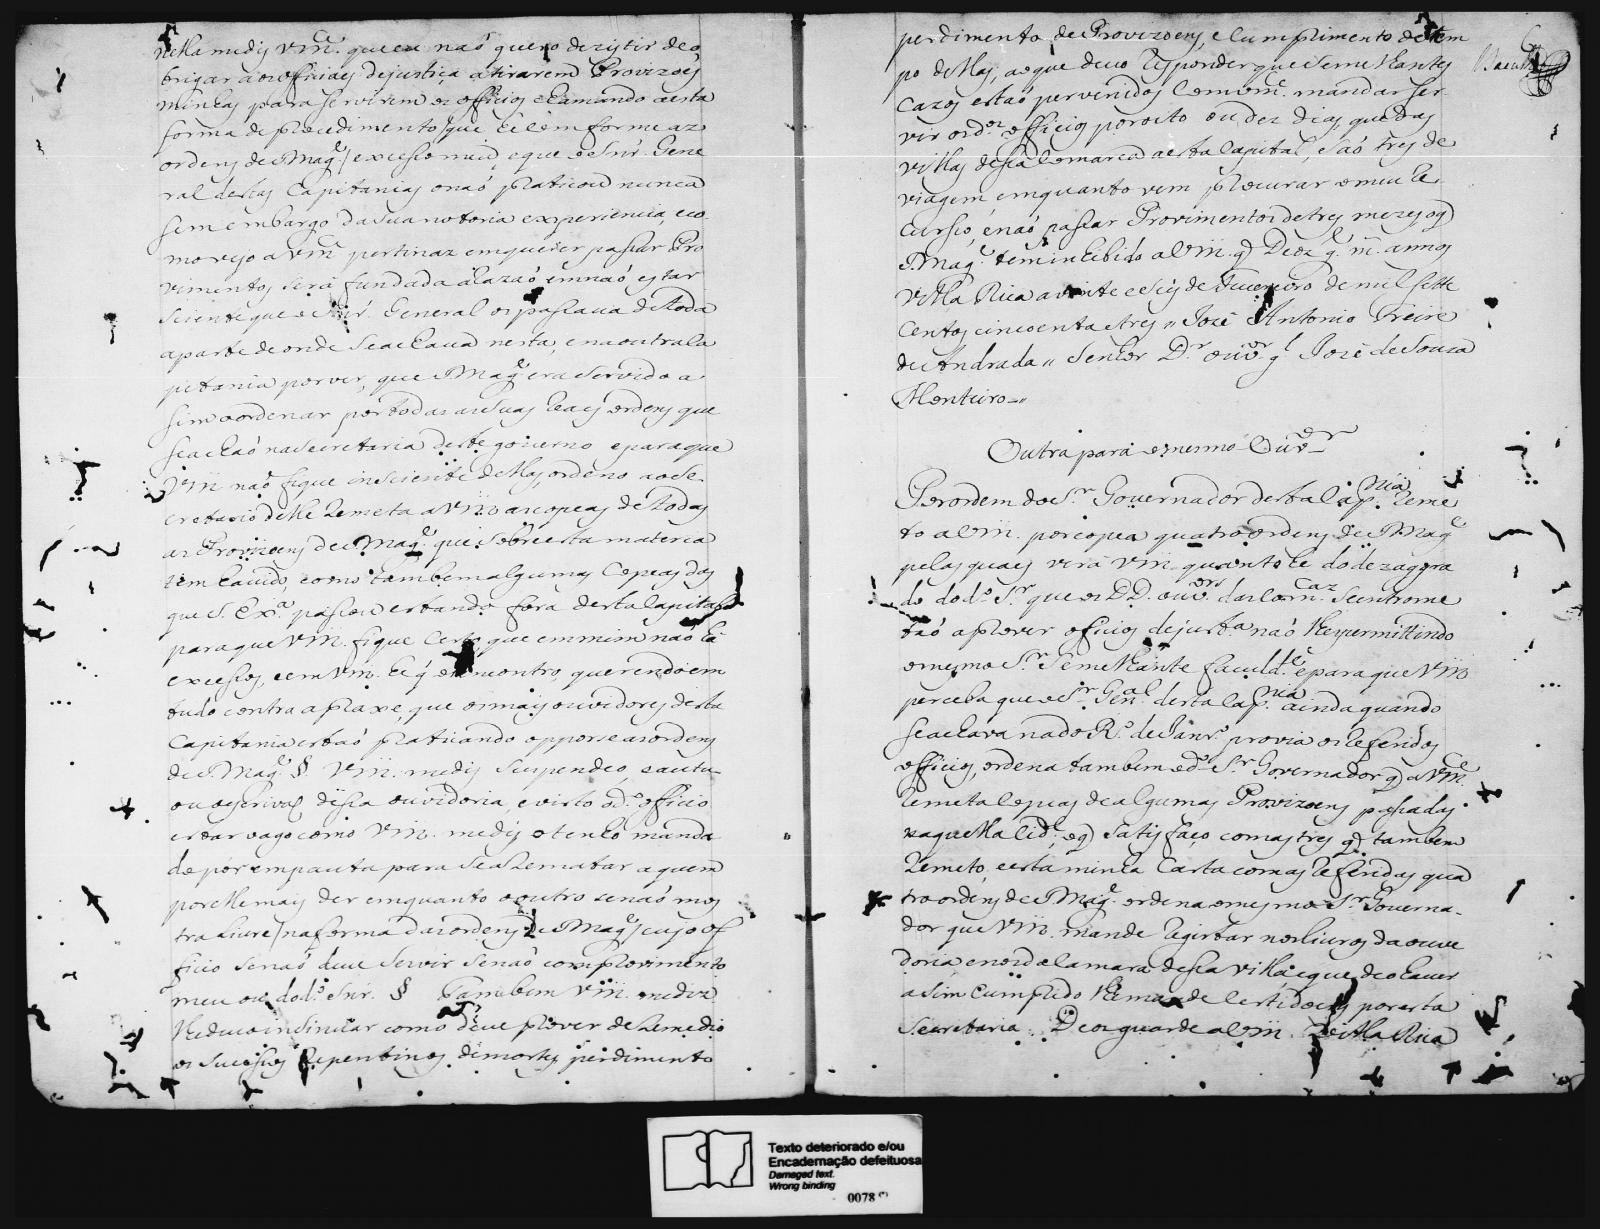 nella me diz Vm.ce que eu naõ quero dezistir de o
brigar aos officiaes de justiça a tirarem Provizoẽs
minhas para servirem os officios chamando a esta
forma de procedimento que he conforme az
ordens de S. Mag.e excesso meu, e que o Snr. Gene
ral destas Capitanias o naõ praticou nunca
sem embargo da sua notoria experiencia, e co
mo vejo a Vm.ce pertinaz em querer passar Pro
vimentos será fundada a razaõ em naõ estar
sciente que o Snr. General os passava de toda
a parte de onde se achava nesta, e na outra Ca
pitania por ver, que S. Mag.e era servido a
sim o ordenar por todas as suas reaes ordens que
se achaõ na secretaria deste governo e para que
Vm naõ fique insciente dellas, ordeno ao se
cretario delle remeta a Vm as copeas de todas
as Provizoens de S. Mag.e que sobre esta materia
tem havido, como tambem algumas Copeas das
que S. Ex.a passou estando fora desta Capital
para que Vm. fique certo que em mim naõ há
excesso, e em Vm. he q̃ o encontro, querendo em
tudo contra a praxe, que os mais ouvidores desta
Capitania estaõ praticando oppor se as ordens
de S. Mag.e § Vm. me diz suspendeo, e autu
ou o escrivaõ dessa ouvidoria, e visto o d.o officio
estar vago como Vm. me diz o tenho manda
do por em pauta para se arrematar a quem
por elle mais der emquanto o outro se naõ mos
tra livre na forma das ordens de S. Mag.e cujo of
ficio se naõ deve servir senaõ com provimento
meu ou do d.o Snr. § Tambem Vm. me diz
lhe devo insinuar como deve prover de remedio
os sucessos repentinos de mortes, perdimento
perdimento de Provizoens, e Cumplimento de tem
po dellas, ao que devo responder que semelhantes
cazos estaõ pervenidos com Vm.ce mandar ser
vir os d.os officios por oito ou dez dias, que das
villas dessa Comarca a esta Capital, saõ tres de
viagem, emquanto vem procurar o meu re
curso, e naõ passar Provimentos de tres mezes, o q̃
S. Mag.e tem inhibido a Vm. q̃ Deos g.e m. annos
Villa Rica a vinte e seis de Fevereiro de mil sette
centos cincoenta e tres // Jozé Antonio Freire
de Andrada // Senhor D.r ouv.or g.l Jozé de Souza
Monteiro //
Outra para o mesmo Ouv.or
Por ordem do S.r Governador desta Cap.nia reme
to a Vm. por copea quatro ordens de S. Mag.e
pelas quaes verá Vm quanto he do dezagra
do do d.o S.r que os DD. ouv.res das Com.cas se introme
taõ a prover officios de just.a naõ lhe permittindo
o mesmo S.r semelhante faculd.e e para que Vm
perceba que o S.r Gen.al desta Cap.nia ainda quando
se achava no do R.o de Jan.ro provia os referidos
officios, ordena tambem o d.o S.r Governador q̃ a Vm.ce
remeta copeas de algumas Provizoens passadas
naquella Cid.e o q̃ satisfaço com as tres q̃ tambem
remeto, e esta minha Carta com as referidas qua
tro ordens de S. Mag.e ordena o mesmo S.r Governa
dor que Vm. mande registar nos livros da ouve
doria, e nos da Camara dessa villa, e que de o haver
asim cumprido lhe mande certidoens por esta
Secretaria. Deos guarde a Vm. Villa Rica
Texto deteriorado e/ou
Encadernação defeituosa
Damaged text.
Wrong binding
0078